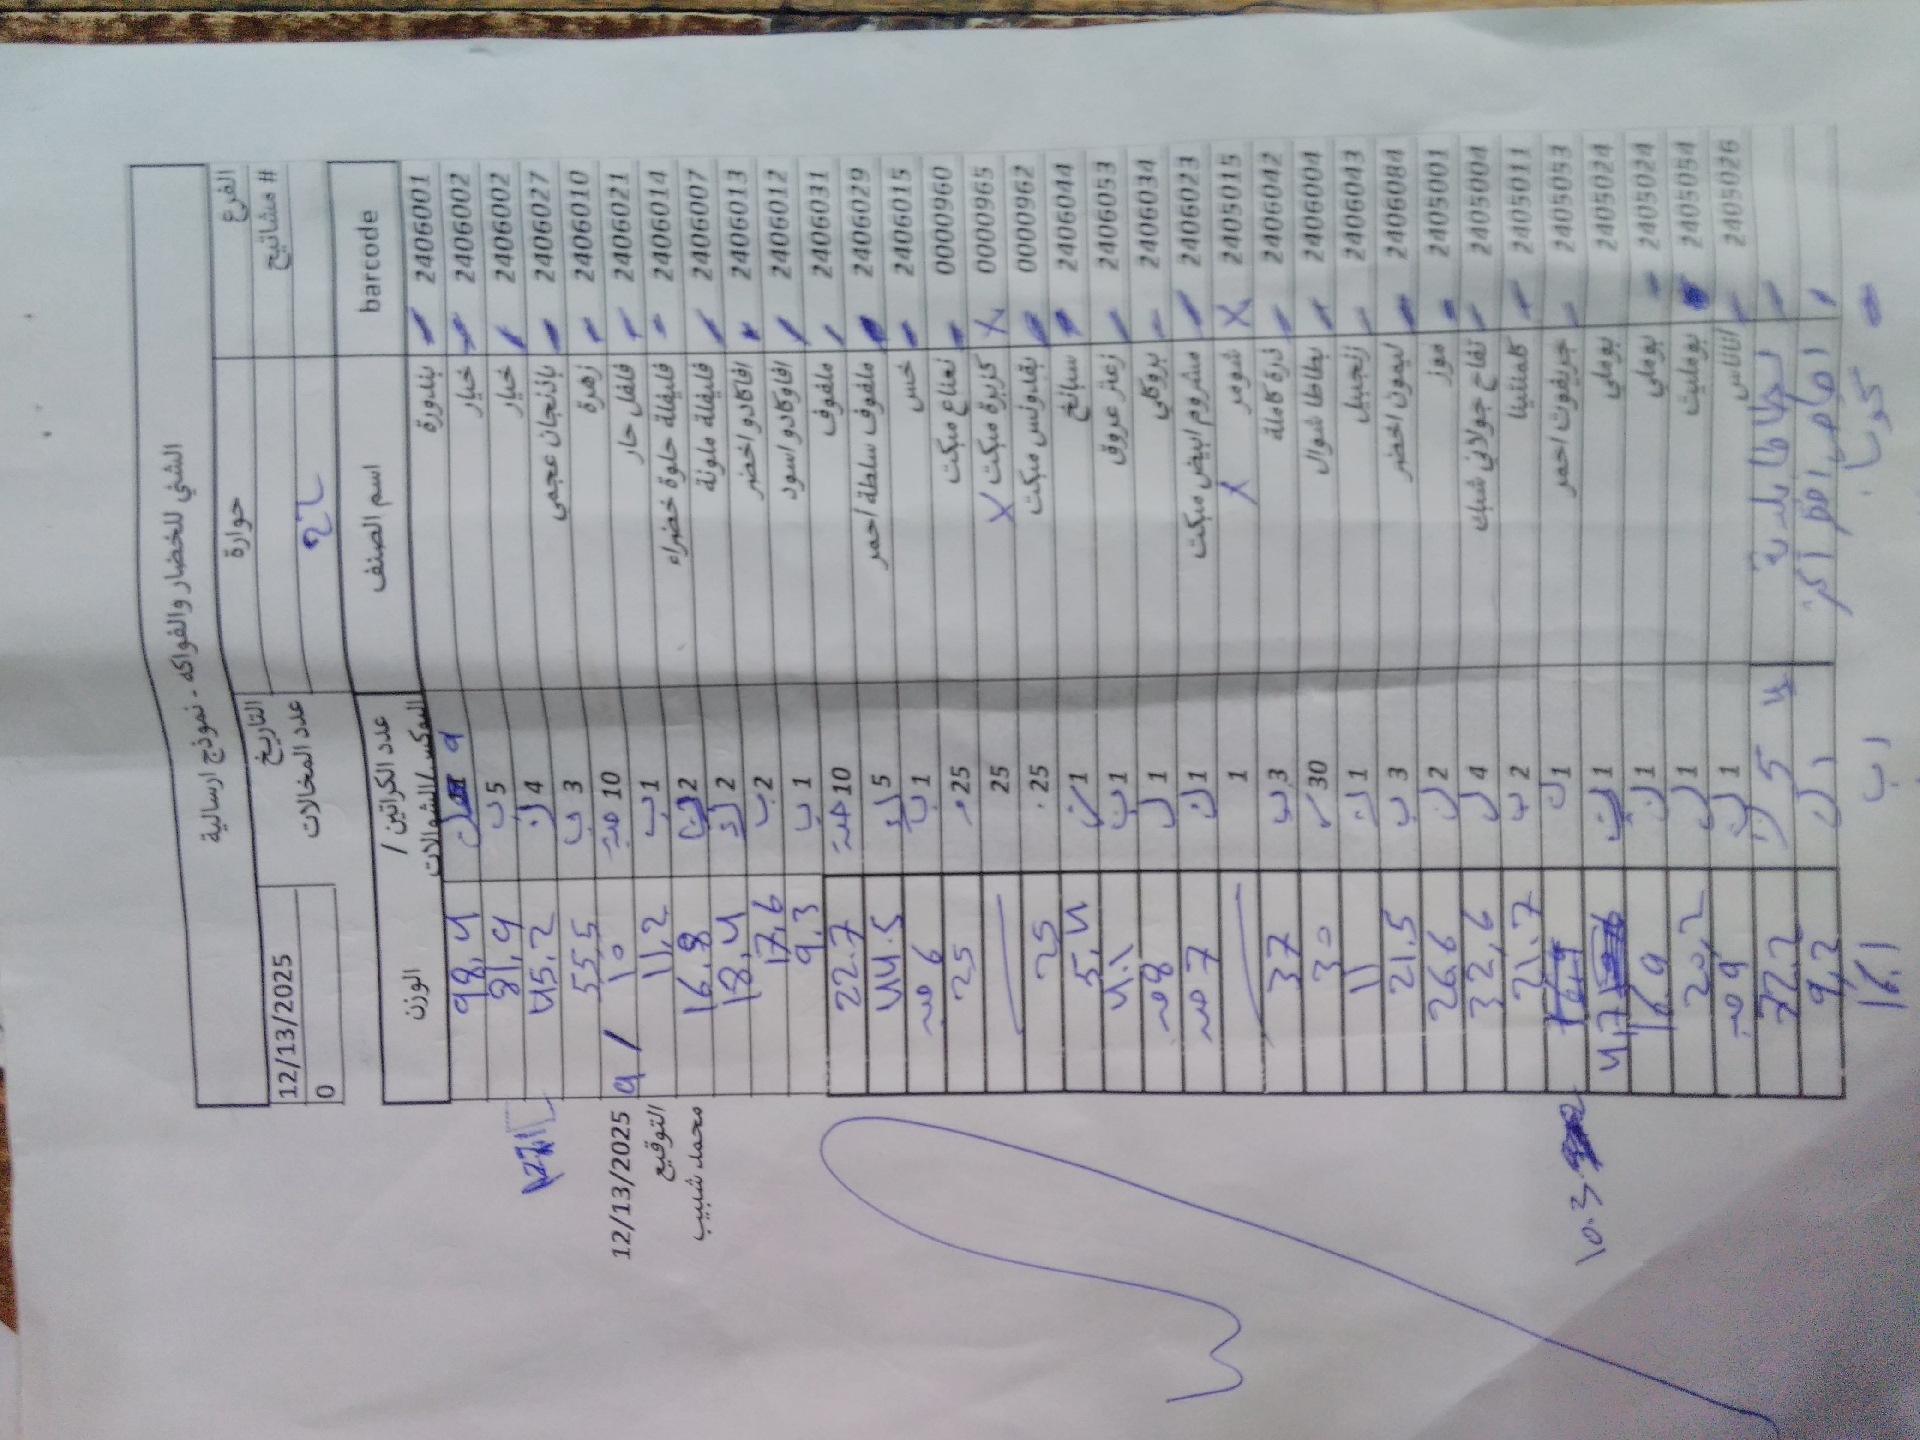 الشني للخضار والفواكه - نموذج ارسالية
الفرع حوارة التاريخ 12/13/2025
# مشاتيح عدد المخالات 0
barcode اسم الصنف عدد الكراتين / البوكس/الشوالات الوزن
2406001 بندورة 9 98,4
2406002 خيار 5 ب 81,9
2406002 خيار 4 45,2
2406027 باذنجان عجمي 3 ب 55,5
2406010 زهرة 10 حبة 10
2406021 فلفل حار 1 ب 11,2
2406014 فليفلة حلوة خضراء 2 16,8
2406007 فليفلة ملونة 2 18,4
2406013 افاكادو اخضر 2 ب 17,6
2406012 افاوكادو اسود 1 ب 9,3
2406031 ملفوف 10 حبة 22.7
2406029 ملفوف سلطة احمر 5 44.5
2406015 خس 1 ب 6
0000960 نعناع مبكت 25 25
0000965 كزبرة مبكت X 25
0000962 بقدونس مبكت 25 25
2406044 سبانخ 1 5,4
2406053 زعتر عروق 1 ب 4.1
2406034 بروكلي 1 8
2406023 مشروم ابيض مبكت 1 7
2405015 شومر X 1
2406042 ذرة كاملة 3 ب 37
2406004 بطاطا شوال 30 30
2406043 زنجبيل 1 11
2406084 ليمون اخضر 3 ب 21,5
2405001 موز 2 26,6
2405004 تفاح جولاني شبك 4 32,6
2405011 كلمنتينا 2 ب 21.7
2405053 جريفوت احمر 1 10.3
2405024 بوملي 1
2405024 بوملي 1 16.9
2405054 بومليت 1 20,2
2405026 اناناس 1 9
بطاطا بلدية 5 72.2
1 9,2
1 ب 16.1
12/13/2025
التوقيع
محمد شبيب